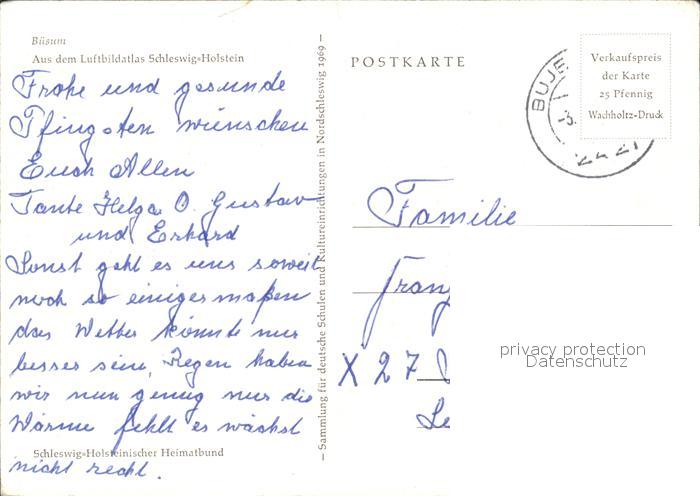 Büsum
Aus dem Luftbildatlas Schleswig-Holstein
Frohe und gesunde
Pfingsten wünschen
Euch Allen
Tante Helga O. Gustav
und Erhard
Sonst geht es uns soweit
noch so einigermaßen
das Wetter könnte nur
besser sein, Regen haben
wir nun genug nur die
Wärme fehlt es wächst
nicht recht.
Schleswig-Holsteinischer Heimatbund
— Sammlung für deutsche Schulen und Kultureinrichtungen in Nordschleswig 1969 —
POSTKARTE
Verkaufspreis
der Karte
25 Pfennig
Wachholtz-Druck
BUJE
-3.
Familie
Franz
X 27
Le
privacy protection
Datenschutz